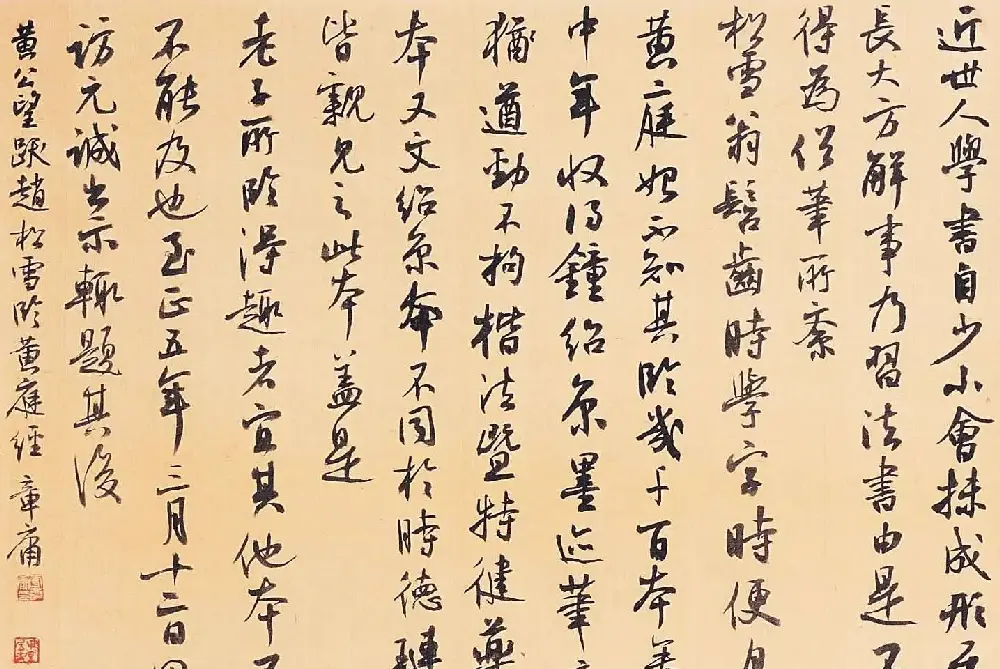 近世人學書自少小會採成形
長大方解事乃習法書由是
得為俗筆所紊
松雪翁髫齒時學字時便
黄庭始不知其臨幾千百本
中年收得鍾紹京墨迹筆
猶遒勁不拘楷法暨特健藥
本又文紹京本不同於時德璉
皆親見之此本蓋是
老子所臨得趣者宜其他本
不能及也至正五年三月十二日
訪元誠出示輙題其後
黄公望跋趙松雪臨黄庭經 章庸